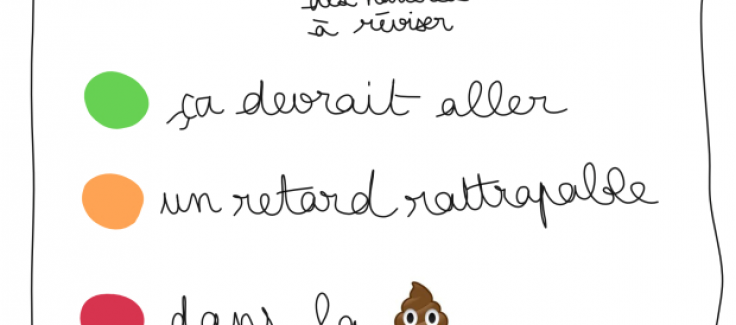 à réviser
ça devrait aller
un retard rattrapable
dans la 💩